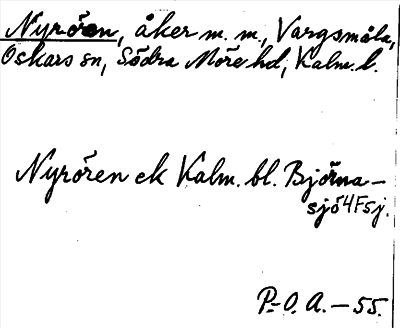 Nyrören, åker m. m., Vargsmåla,
Oskars sn, Södra Möre hd, Kalm. l.
Nyrören ek Kalm. bl. Björna-
sjö 4F5j.
P.-O. A. - 55.